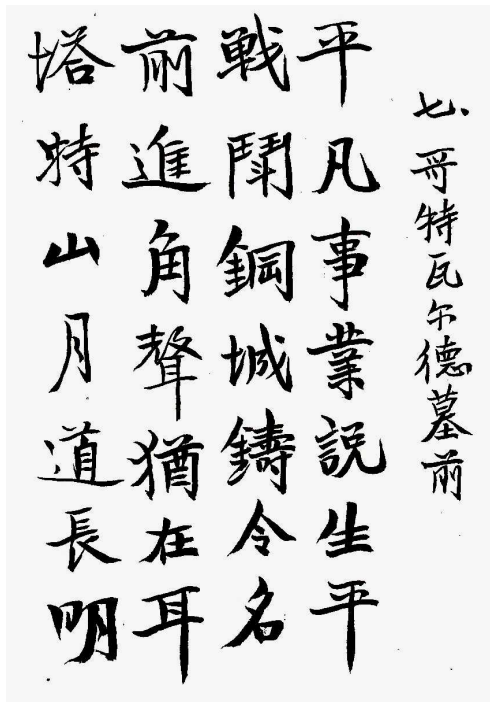 七、哥特瓦尔德墓前
平凡事業説生平
戰鬪鋼城鑄令名
前進角聲猶在耳
塔特山月道長明